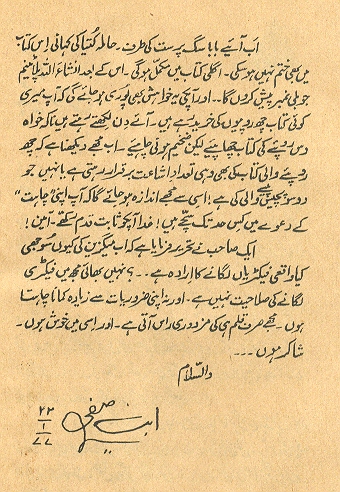 اب آئیے بابا سگ پرست کی طرف۔ حاملہ کتیا کی کہانی اس کتاب
میں بھی ختم نہیں ہوسکی۔ اگلی کتاب میں مکمل ہوگی۔ اس کے بعد انشاءاللہ پلاٹینم
جوبلی نمبر پیش کروں گا۔۔ اور آپکی یہ خواہش بھی پوری ہو جائے گی کہ آپ میری
کوئی کتاب چھ روپوں کی خرید رہے ہیں۔ آئے دن لکھتے رہتے ہیں نا کہ خواہ
دس روپئے کی کتاب چھاپئے لیکن ضخیم ہونی چاہیئے۔ اب مجھے دیکھنا ہے کہ چھ
روپئے والی کتاب کی بھی وہی تعدادِ اشاعت برقرار رہتی ہے یا نہیں جو
دو سو پچیس پیسے والی کی ہے! اسی سے مجھے اندازہ ہو جائے گا کہ آپ اپنی "چاہت"
کے دعوے میں کس حد تک سچّے ہیں! خدا آپکو ثابت قدم رکھے۔ آمین!
ایک صاحب نے تحریر فرمایا ہے کہ اب میگزین کی کیوں سوجھی
کیا واقعی فیکٹریاں لگانے کا ارادہ ہے۔۔؟ نہیں بھائی مجھ میں فیکٹری
لگانے کی صلاحیت نہیں ہے۔ اور نہ اپنی ضروریات سے زیادہ کمانا چاہتا
ہوں۔ مجھے صرف قلم ہی کی مزدوری راس آتی ہے۔ اور اسی میں خوش ہوں۔
شاکر ہوں۔۔۔
والسّلام
ابن صفی
۲۲
۱
۷۷